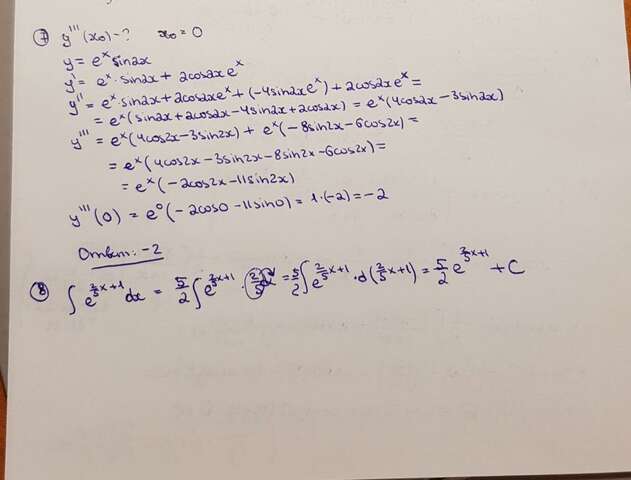 ⑦ y'''(x₀) - ? x₀ = 0
y = eˣ sin2x
y' = eˣ · sin2x + 2cos2x eˣ
y'' = eˣ · sin2x + 2cos2x eˣ + (-4sin2x eˣ) + 2cos2x eˣ =
= eˣ (sin2x + 2cos2x - 4sin2x + 2cos2x) = eˣ (4cos2x - 3sin2x)
y''' = eˣ (4cos2x - 3sin2x) + eˣ (-8sin2x - 6cos2x) =
= eˣ (4cos2x - 3sin2x - 8sin2x - 6cos2x) =
= eˣ (-2cos2x - 11sin2x)
y'''(0) = e⁰ (-2cos0 - 11sin0) = 1 · (-2) = -2
Ответ: -2
⑧ ∫ e^(2/5 x + 1) dx = 5/2 ∫ e^(2/5 x + 1) · 2/5 dx = 5/2 ∫ e^(2/5 x + 1) · d(2/5 x + 1) = 5/2 e^(2/5 x + 1) + C